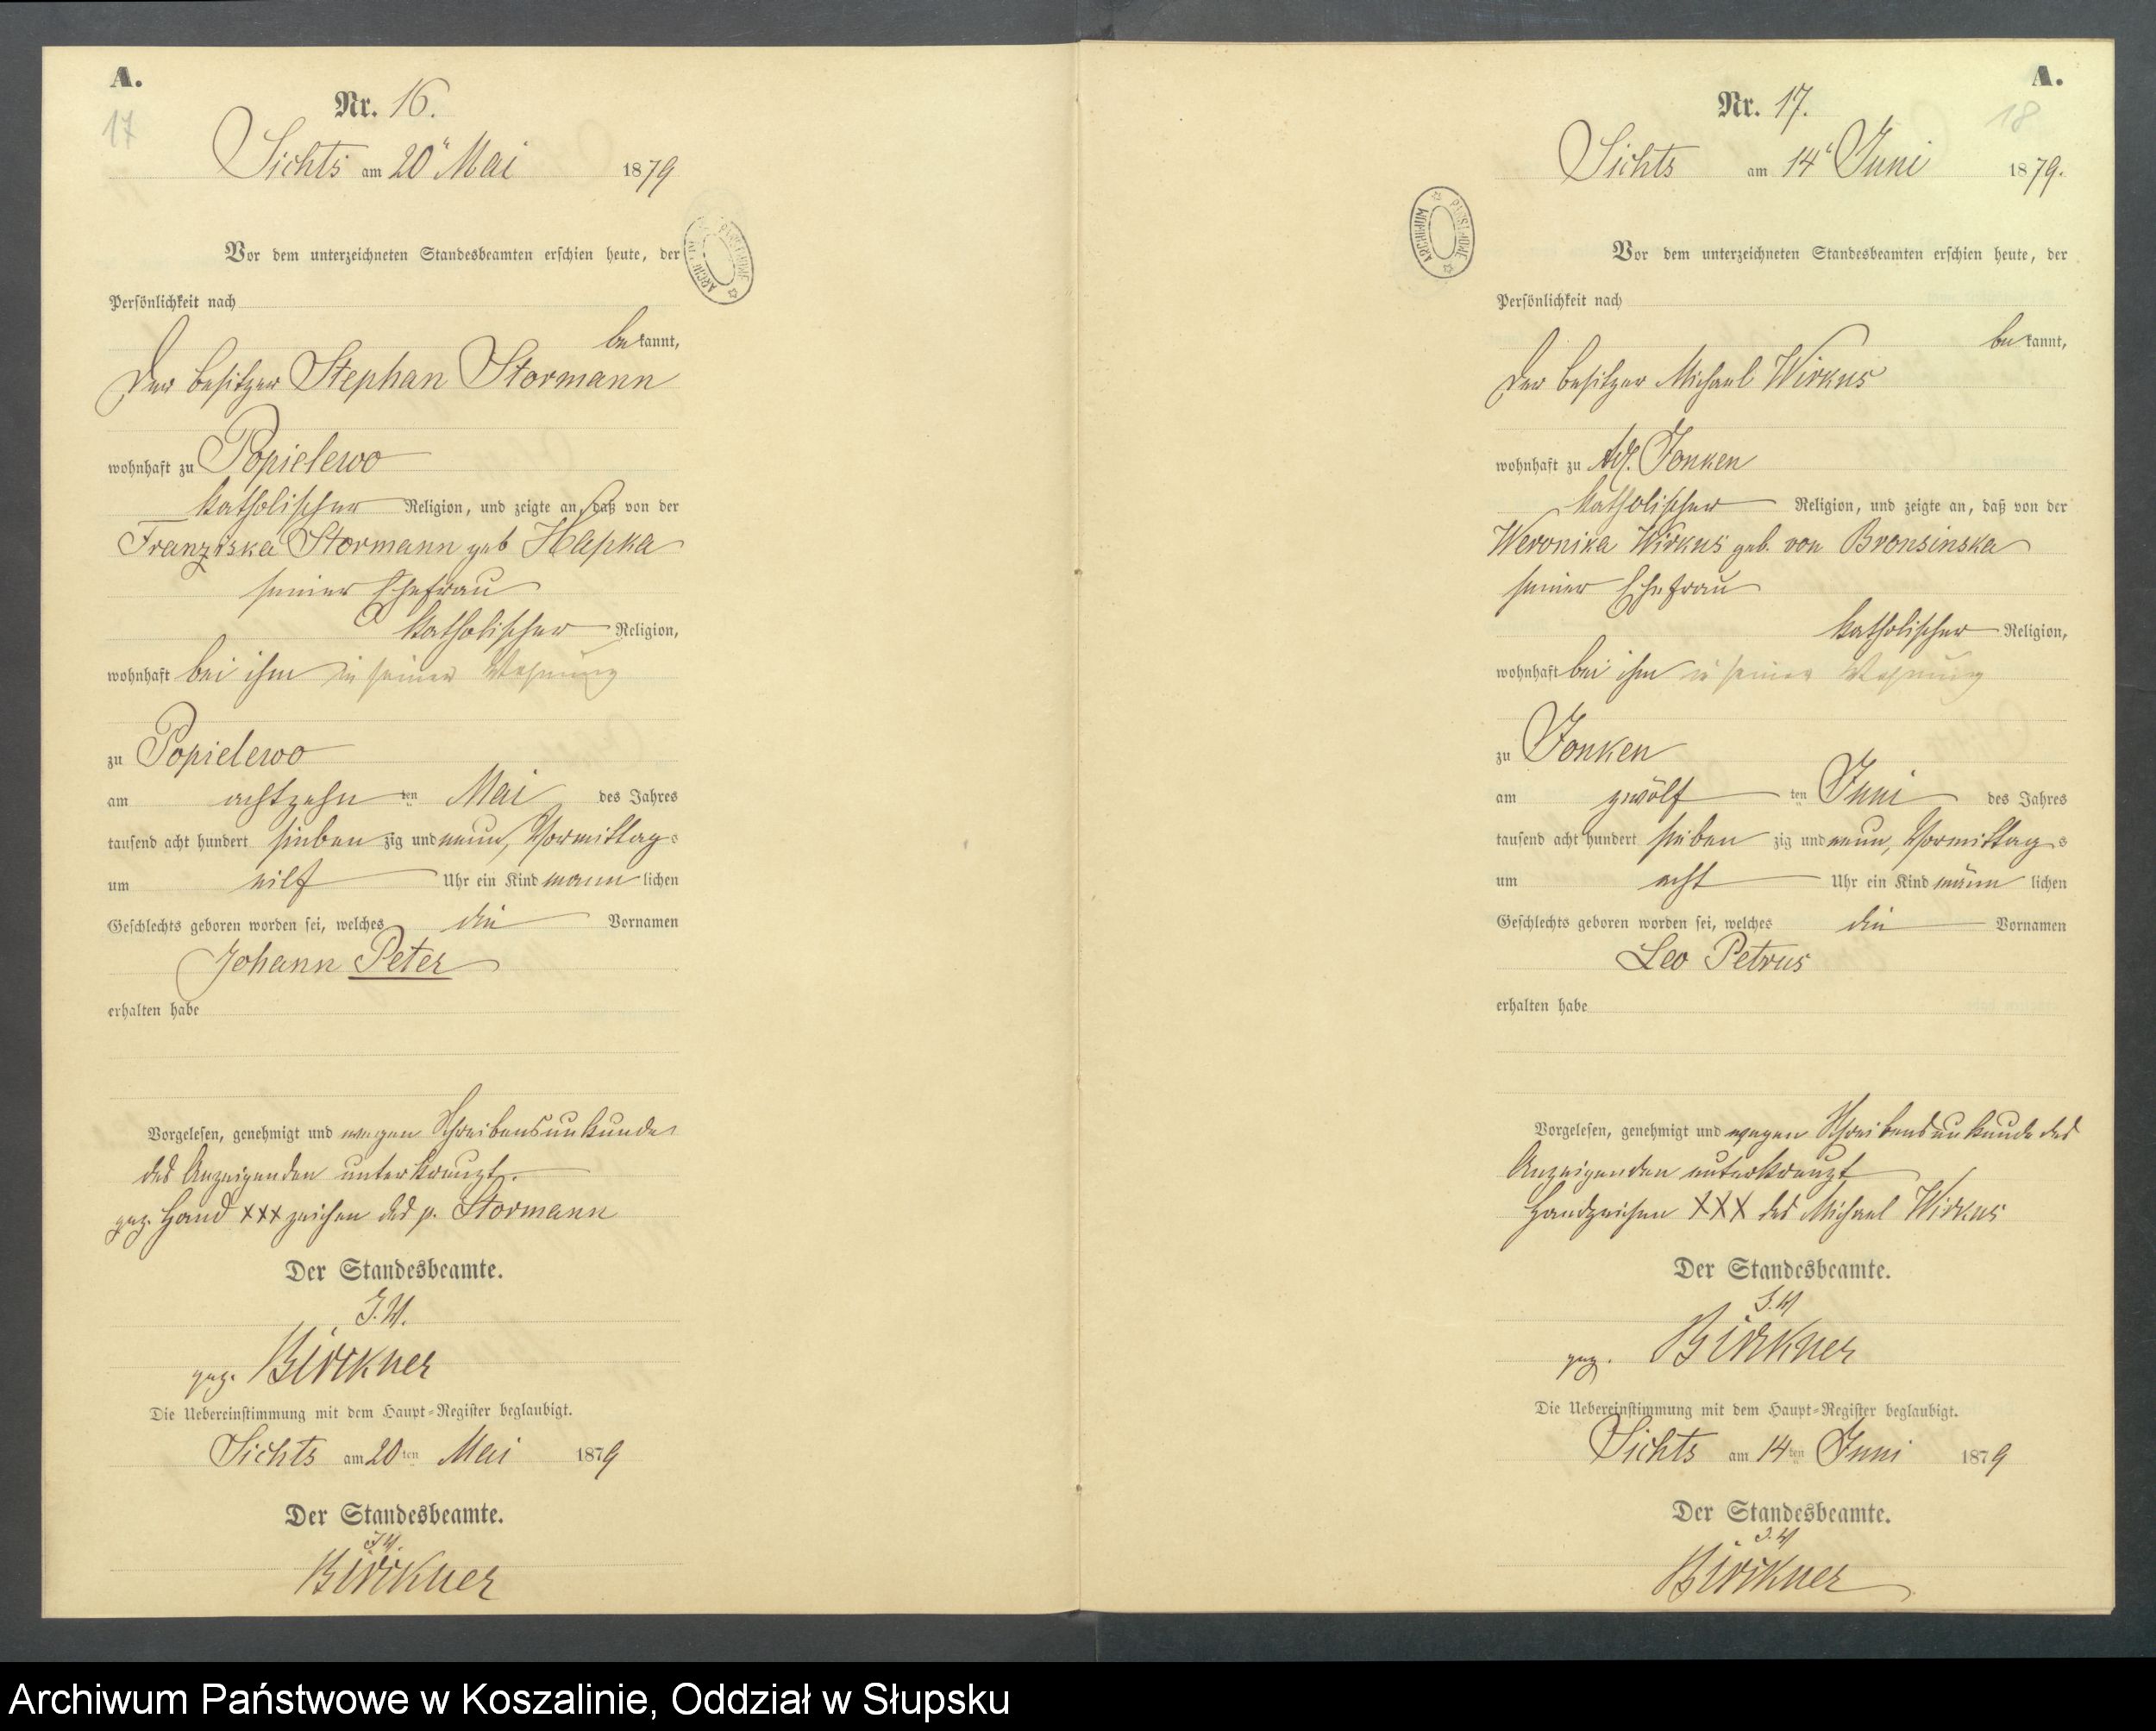 A.
17
Nr. 16.
Sichts am 20" Mai 1879
Vor dem unterzeichneten Standesbeamten erschien heute, der
Persönlichkeit nach
bekannt,
Der Besitzer Stephan Stormann
wohnhaft zu Popielewo
katholischer Religion, und zeigte an, daß von der
Franziska Stormann geb Hapka
seiner Ehefrau
katholischer Religion,
wohnhaft bei ihm in seiner Wohnung
zu Popielewo
am achtzehn ten Mai des Jahres
tausend acht hundert sieben zig und neun, Vormittags
um eilf Uhr ein Kind männlichen
Geschlechts geboren worden sei, welches die Vornamen
Johann Peter
erhalten habe
Vorgelesen, genehmigt und wegen Schreibensunkunde
des Anzeigenden unterkreuzt.
gez. Hand XXX zeichen des p. Stormann
Der Standesbeamte.
I.V.
gez. Birkner
Die Uebereinstimmung mit dem Haupt-Register beglaubigt.
Sichts am 20ten Mai 1879
Der Standesbeamte.
I.V.
Birkner
A.
18
Nr. 17.
Sichts am 14" Juni 1879.
ARCHIWUM PAŃSTWOWE
Vor dem unterzeichneten Standesbeamten erschien heute, der
Persönlichkeit nach
bekannt,
Der Besitzer Michael Wirkus
wohnhaft zu Adl. Jonken
katholischer Religion, und zeigte an, daß von der
Weronika Wirkus geb. von Bronsinska
seiner Ehefrau
katholischer Religion,
wohnhaft bei ihm in seiner Wohnung
zu Jonken
am zwölf ten Juni des Jahres
tausend acht hundert sieben zig und neun, Vormittags
um acht Uhr ein Kind männlichen
Geschlechts geboren worden sei, welches die Vornamen
Leo Petrus
erhalten habe
Vorgelesen, genehmigt und wegen Schreibensunkunde des
Anzeigenden unterkreuzt
Handzeichen XXX des Michael Wirkus
Der Standesbeamte.
I.V.
gez. Birkner
Die Uebereinstimmung mit dem Haupt-Register beglaubigt.
Sichts am 14ten Juni 1879
Der Standesbeamte.
I.V.
Birkner
Archiwum Państwowe w Koszalinie, Oddział w Słupsku